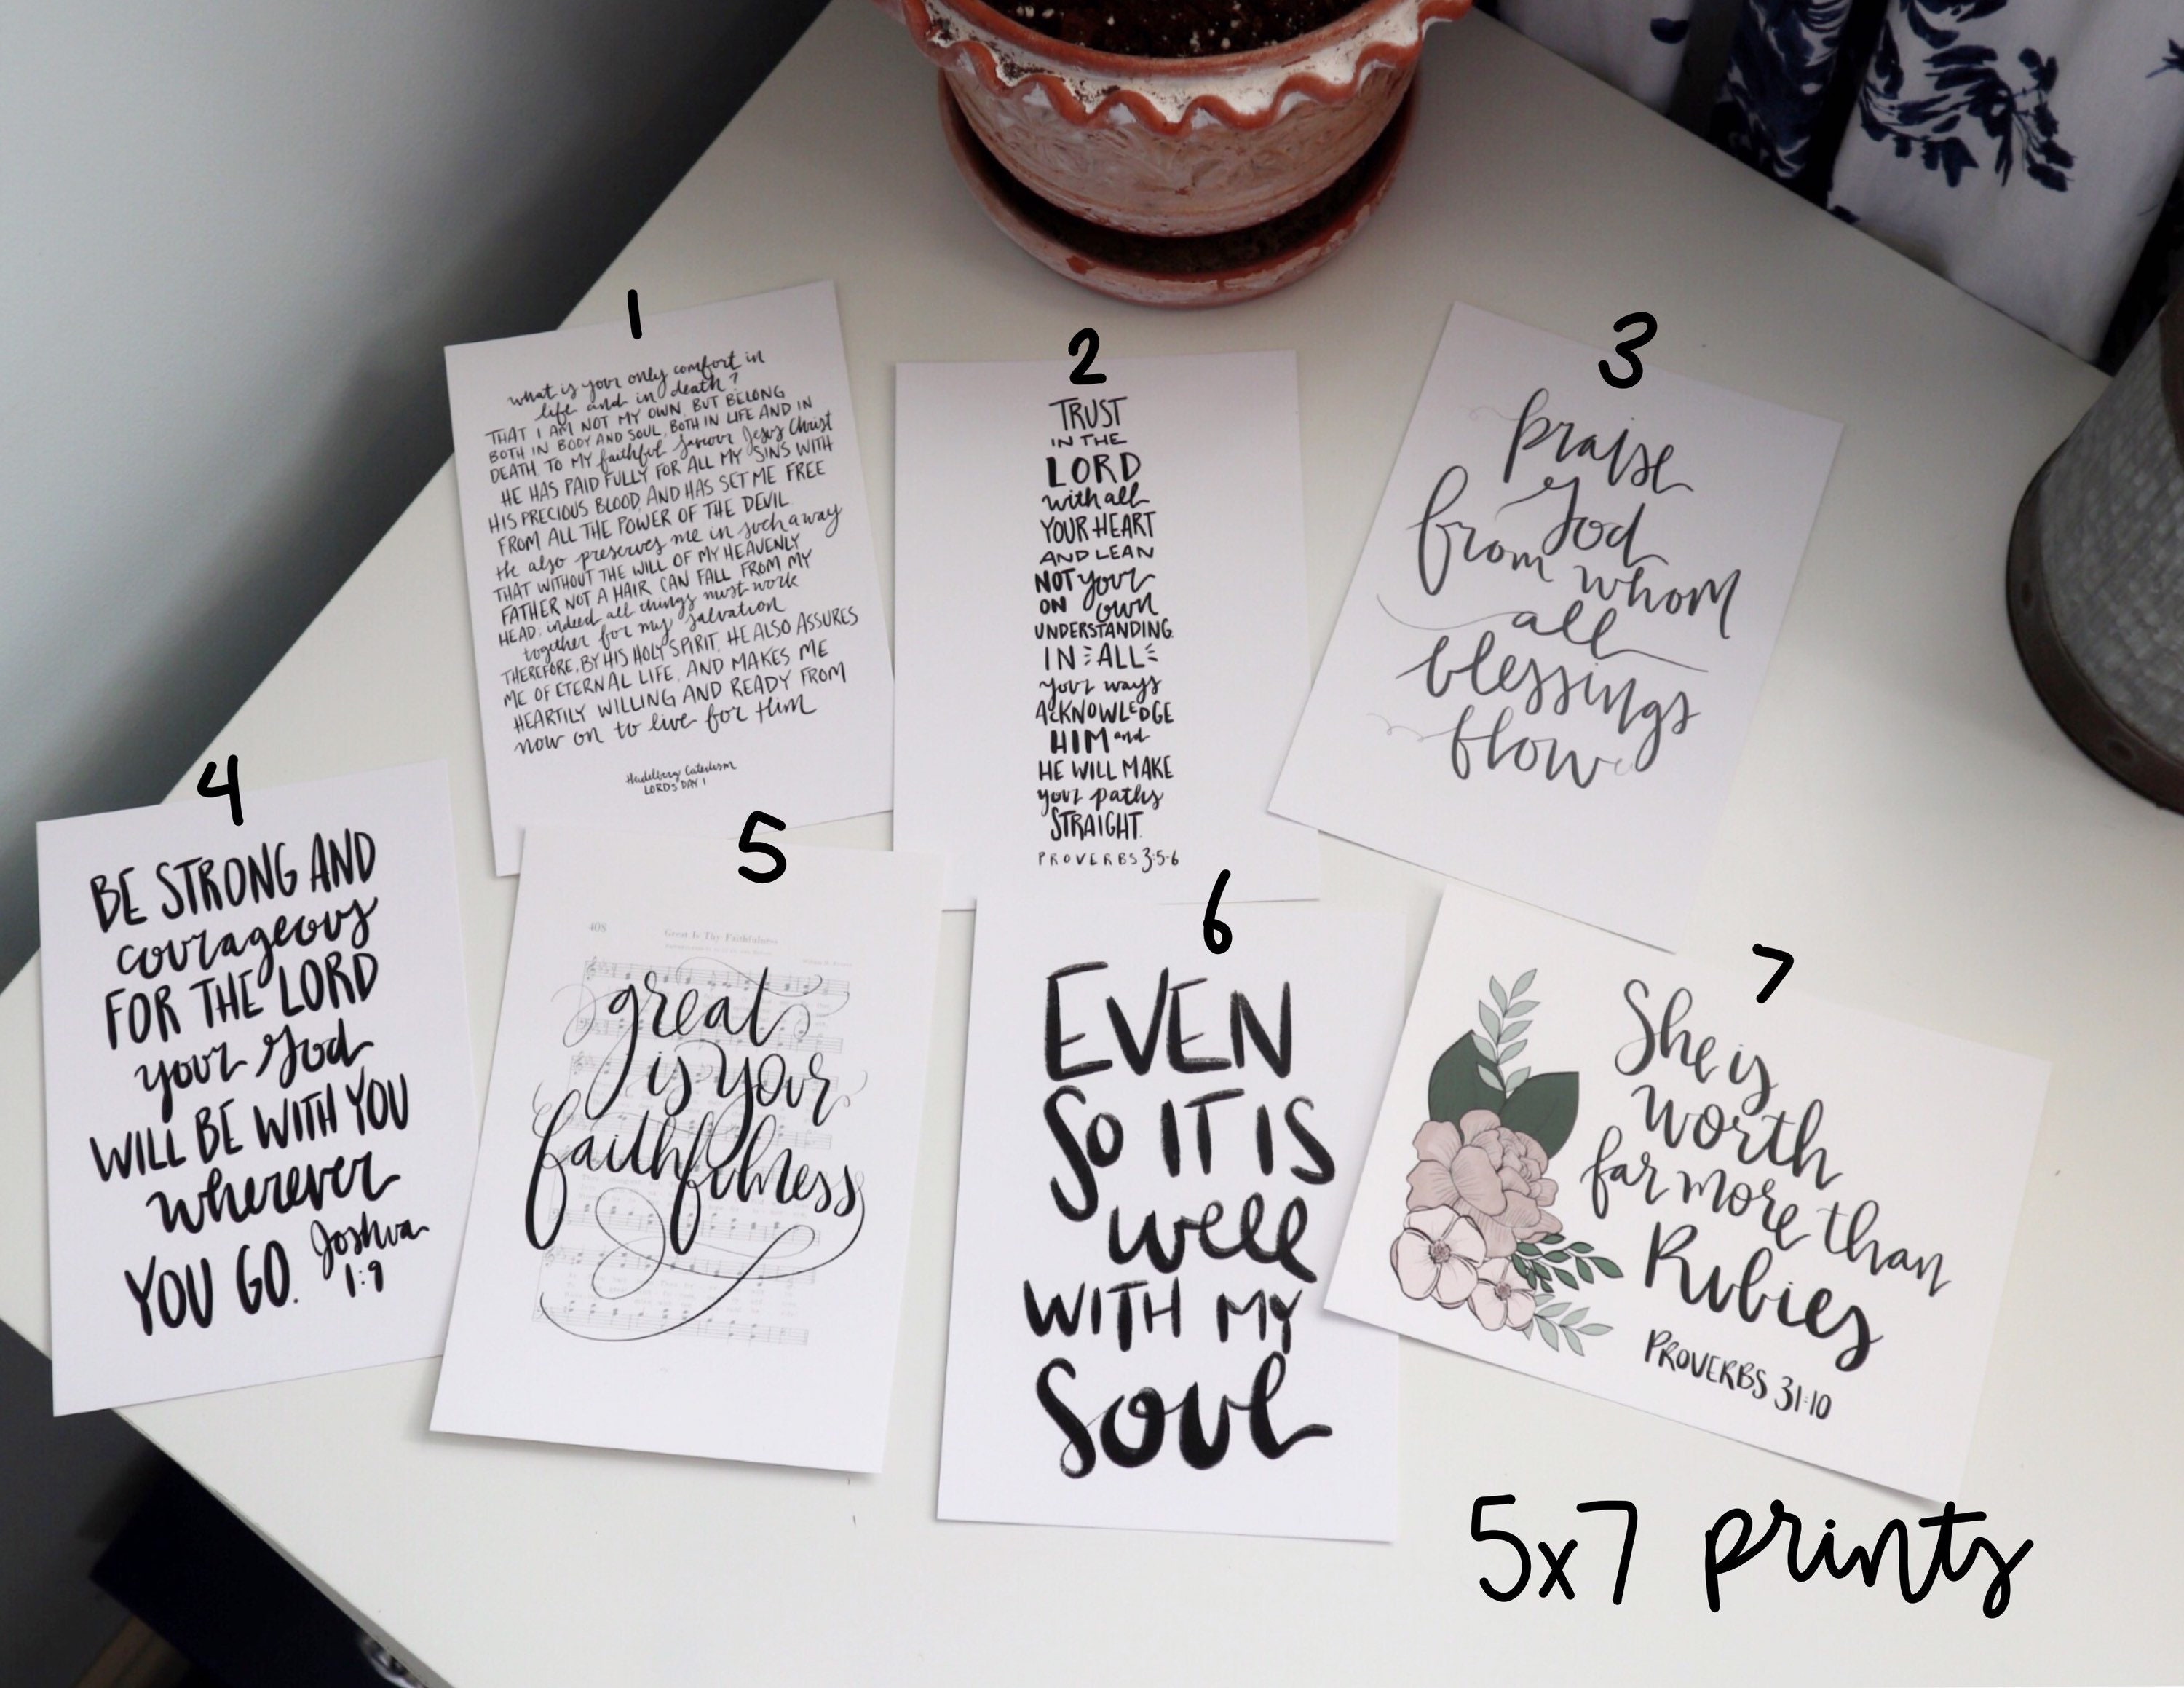 1
what is your only comfort in
life and in death?
THAT I AM NOT MY OWN, BUT BELONG
BOTH IN BODY AND SOUL, BOTH IN LIFE AND IN
DEATH, TO MY faithful saviour Jesus Christ
HE HAS PAID FULLY FOR ALL MY SINS WITH
HIS PRECIOUS BLOOD, AND HAS SET ME FREE
FROM ALL THE POWER OF THE DEVIL.
He also preserves me in such a way
THAT WITHOUT THE WILL OF MY HEAVENLY
FATHER NOT A HAIR CAN FALL FROM MY
HEAD; indeed all things must work
together for my salvation
THEREFORE, BY HIS HOLY SPIRIT, HE ALSO ASSURES
ME OF ETERNAL LIFE, AND MAKES ME
HEARTILY WILLING AND READY FROM
now on to live for Him
Heidelberg Catechism
LORDS DAY 1
2
TRUST
IN THE
LORD
with all
YOUR HEART
AND LEAN
NOT your
ON own
UNDERSTANDING.
IN ALL
your ways
ACKNOWLEDGE
HIM and
HE WILL MAKE
your paths
STRAIGHT.
PROVERBS 3:5-6
3
praise
God
from whom
all
blessings
flow
4
BE STRONG AND
courageous
FOR THE LORD
your God
WILL BE WITH YOU
wherever
YOU GO. Joshua
1:9
5
408
Great Is Thy Faithfulness
great
is your
faithfulness
6
EVEN
SO IT IS
well
WITH MY
Soul
7
She is
worth
far more than
Rubies
PROVERBS 31:10
5x7 prints